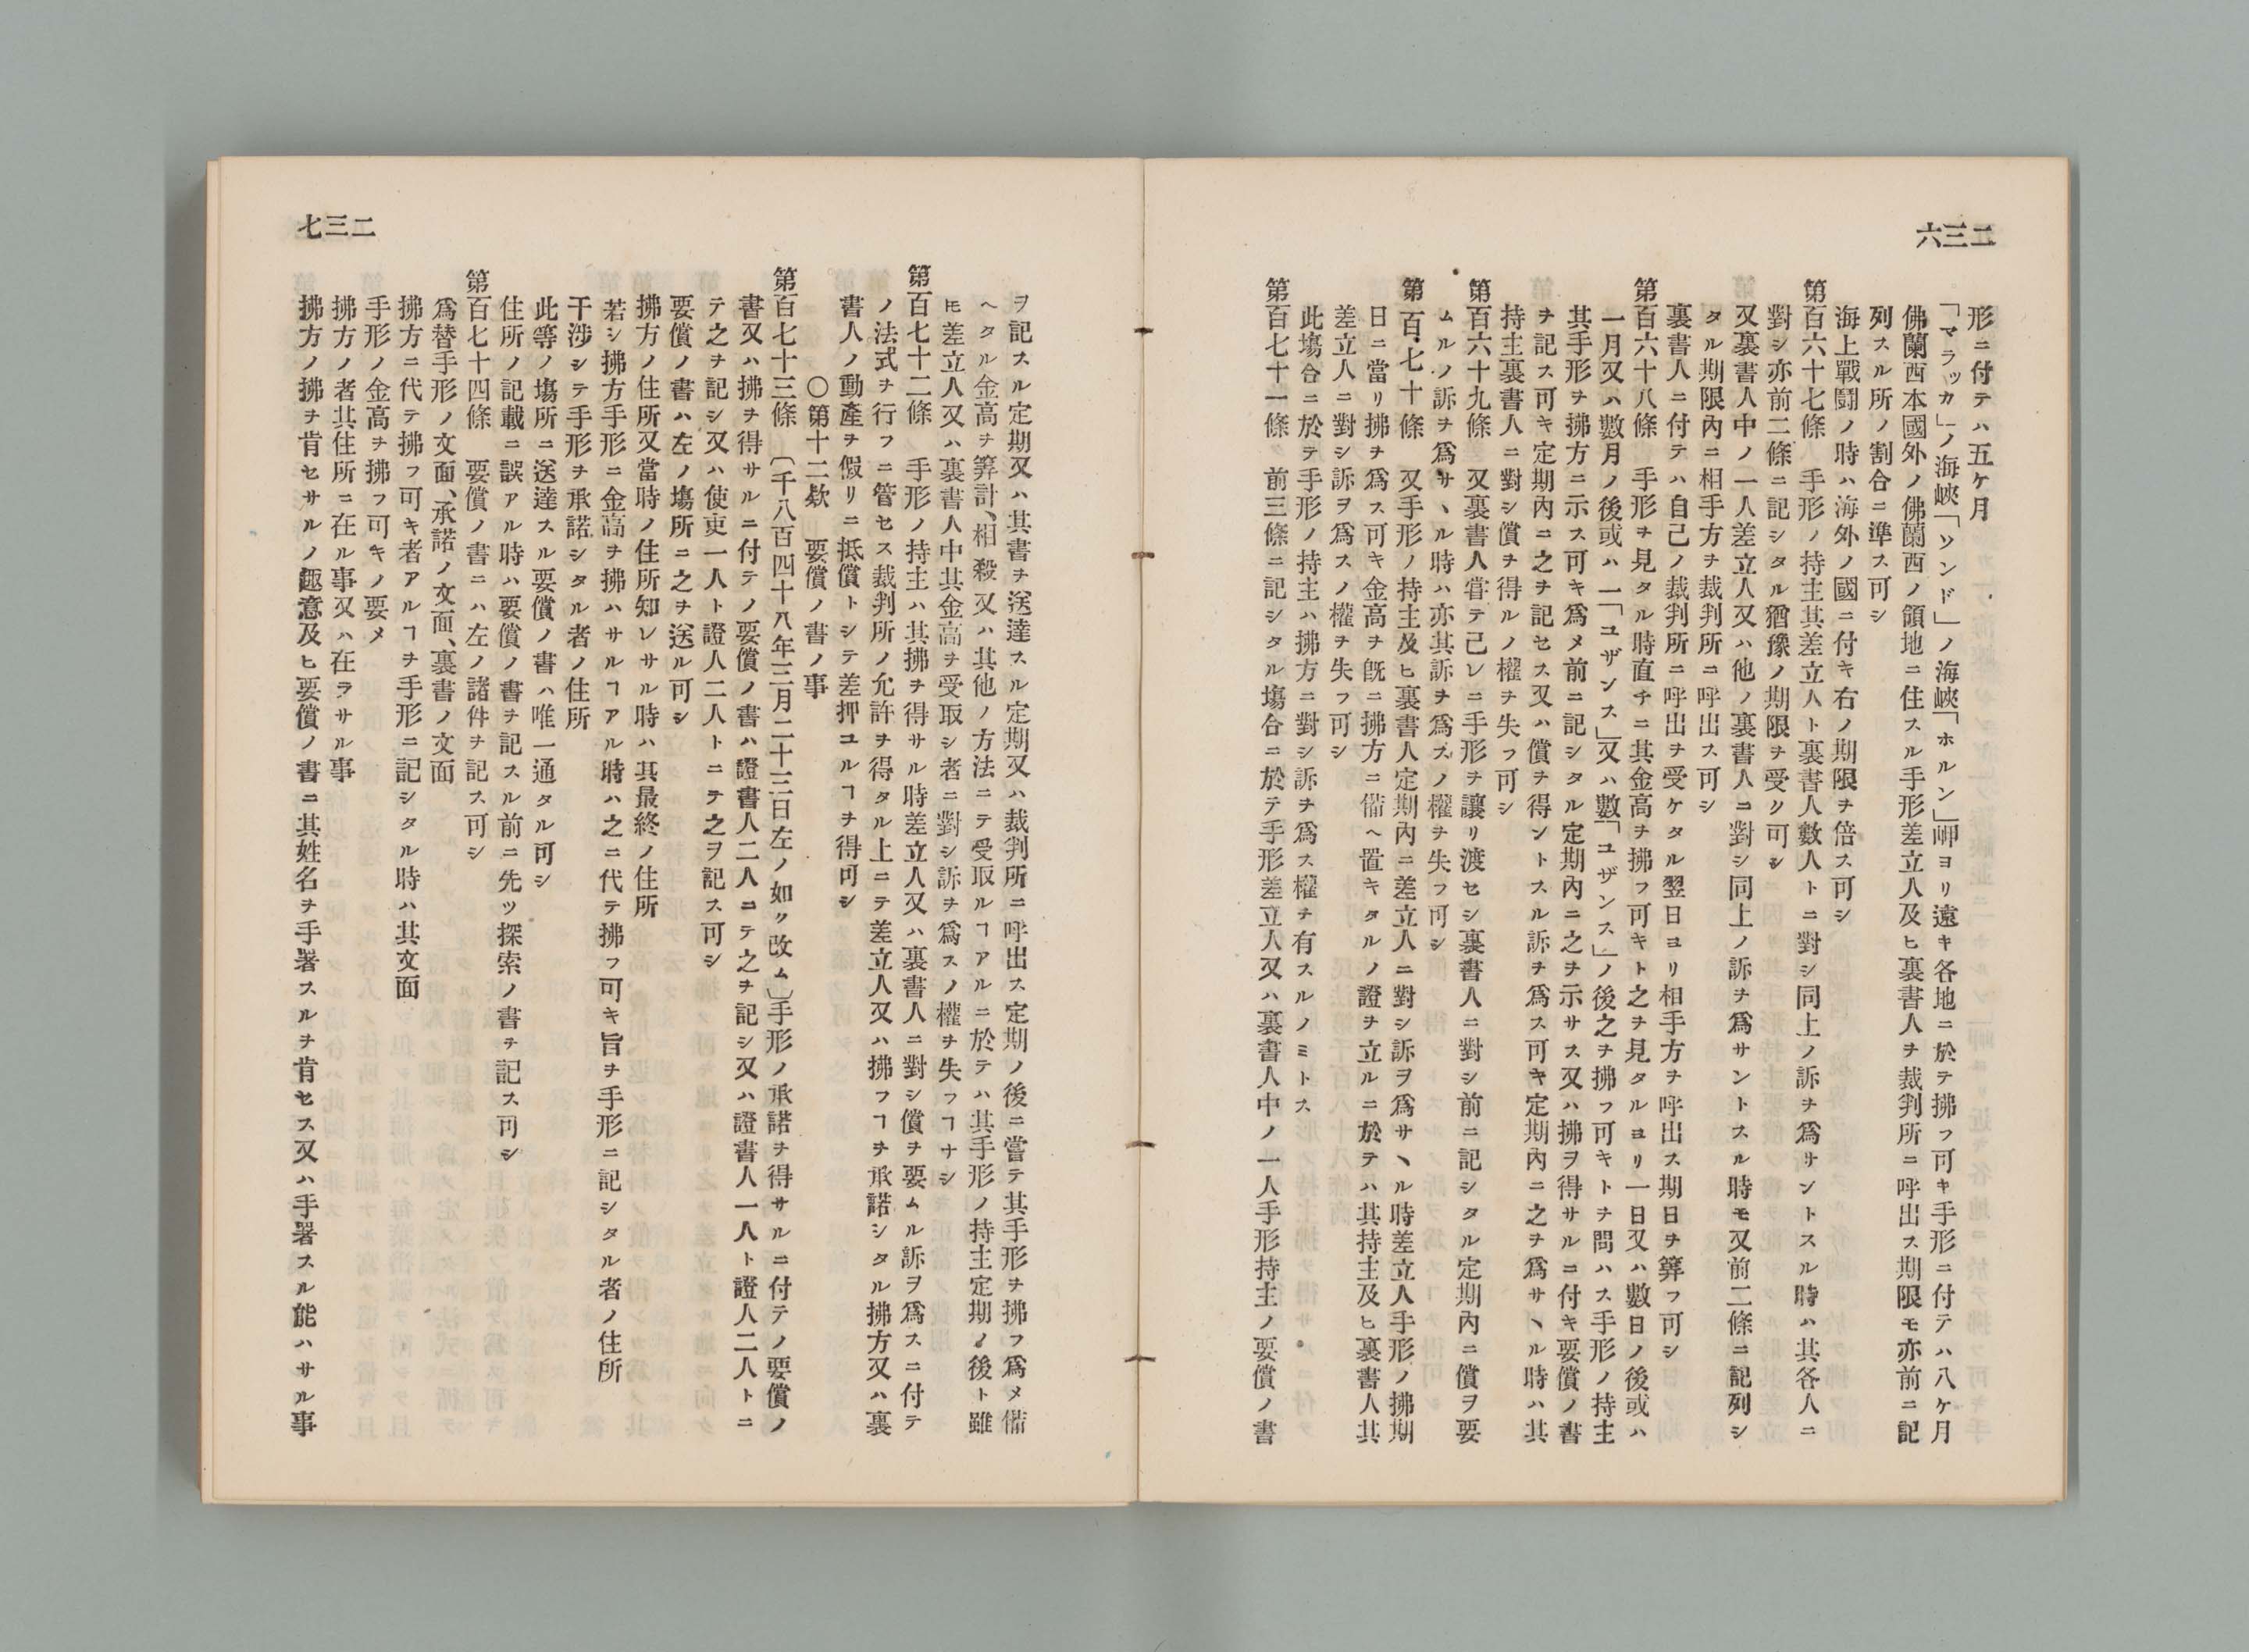 二三六
形ニ付テハ五ケ月
「マラッカ」ノ海峽「ソンド」ノ海峽「ホルン」岬ヨリ遠キ各地ニ於テ拂フ可キ手形ニ付テハ八ケ月
佛蘭西本國外ノ佛蘭西ノ領地ニ住スル手形差立人及ヒ裏書人ヲ裁判所ニ呼出ス期限モ亦前ニ記
列スル所ノ割合ニ準ス可シ
海上戰鬪ノ時ハ海外ノ國ニ付キ右ノ期限ヲ倍ス可シ
第百六十七條　手形ノ持主其差立人ト裏書人數人トニ對シ同上ノ訴ヲ爲サントスル時ハ其各人ニ
對シ亦前二條ニ記シタル猶豫ノ期限ヲ受ク可シ
又裏書人中ノ一人差立人又ハ他ノ裏書人ニ對シ同上ノ訴ヲ爲サントスル時モ又前二條ニ記列シ
タル期限內ニ相手方ヲ裁判所ニ呼出ス可シ
裏書人ニ付テハ自己ノ裁判所ニ呼出ヲ受ケタル翌日ヨリ相手方ヲ呼出ス期日ヲ算フ可シ
第百六十八條　手形ヲ見タル時直チニ其金高ヲ拂フ可キト之ヲ見タルヨリ一日又ハ數日ノ後或ハ
一月又ハ數月ノ後或ハ一「ユザンス」又ハ數「ユザンス」ノ後之ヲ拂フ可キトヲ問ハス手形ノ持主
其手形ヲ拂方ニ示ス可キ爲メ前ニ記シタル定期內ニ之ヲ示サス又ハ拂ヲ得サルニ付キ要償ノ書
ヲ記ス可キ定期內ニ之ヲ記セス又ハ償ヲ得ントスル訴ヲ爲ス可キ定期內ニ之ヲ爲サヽル時ハ其
持主裏書人ニ對シ償ヲ得ルノ權ヲ失フ可シ
第百六十九條　又裏書人甞テ己レニ手形ヲ讓リ渡セシ裏書人ニ對シ前ニ記シタル定期內ニ償ヲ要
ムルノ訴ヲ爲サヽル時ハ亦其訴ヲ爲スノ權ヲ失フ可シ
第百七十條　又手形ノ持主及ヒ裏書人定期內ニ差立人ニ對シ訴ヲ爲サヽル時差立人手形ノ拂期
日ニ當リ拂ヲ爲ス可キ金高ヲ旣ニ拂方ニ備ヘ置キタルノ證ヲ立ルニ於テハ其持主及ヒ裏書人其
差立人ニ對シ訴ヲ爲スノ權ヲ失フ可シ
此塲合ニ於テ手形ノ持主ハ拂方ニ對シ訴ヲ爲ス權ヲ有スルノミトス
第百七十一條　前三條ニ記シタル塲合ニ於テ手形差立人又ハ裏書人中ノ一人手形持主ノ要償ノ書
二三七
ヲ記スル定期又ハ其書ヲ送達スル定期又ハ裁判所ニ呼出ス定期ノ後ニ甞テ其手形ヲ拂フ爲メ備
ヘタル金高ヲ算計、相殺又ハ其他ノ方法ニテ受取ルヿアルニ於テハ其手形ノ持主定期ノ後ト雖
𪜈差立人又ハ裏書人中其金高ヲ受取シ者ニ對シ訴ヲ爲スノ權ヲ失フヿナシ
第百七十二條　手形ノ持主ハ其拂ヲ得サル時差立人又ハ裏書人ニ對シ償ヲ要ムル訴ヲ爲スニ付テ
ノ法式ヲ行フニ管セス裁判所ノ允許ヲ得タル上ニテ差立人又ハ拂フヿヲ承諾シタル拂方又ハ裏
書人ノ動產ヲ假リニ抵償トシテ差押ユルヿヲ得可シ
〇第十二欵　要償ノ書ノ事
第百七十三條　〔千八百四十八年三月二十三日左ノ如ク改ム〕手形ノ承諾ヲ得サルニ付テノ要償ノ
書又ハ拂ヲ得サルニ付テノ要償ノ書ハ證書人二人ニテ之ヲ記シ又ハ證書人一人ト證人二人トニ
テ之ヲ記シ又ハ使吏一人ト證人二人トニテ之ヲ記ス可シ
要償ノ書ハ左ノ塲所ニ之ヲ送ル可シ
拂方ノ住所又當時ノ住所知レサル時ハ其最終ノ住所
若シ拂方手形ニ金高ヲ拂ハサルヿアル時ハ之ニ代テ拂フ可キ旨ヲ手形ニ記シタル者ノ住所
干涉シテ手形ヲ承諾シタル者ノ住所
此等ノ塲所ニ送達スル要償ノ書ハ唯一通タル可シ
住所ノ記載ニ誤アル時ハ要償ノ書ヲ記スル前ニ先ツ探索ノ書ヲ記ス可シ
第百七十四條　要償ノ書ニハ左ノ諸件ヲ記ス可シ
爲替手形ノ文面、承諾ノ文面、裏書ノ文面
拂方ニ代テ拂フ可キ者アルヿヲ手形ニ記シタル時ハ其文面
手形ノ金高ヲ拂フ可キノ要メ
拂方ノ者其住所ニ在ル事又ハ在ラサル事
拂方ノ拂ヲ肯セサルノ趣意及ヒ要償ノ書ニ其姓名ヲ手署スルヲ肯セス又ハ手署スル能ハサル事